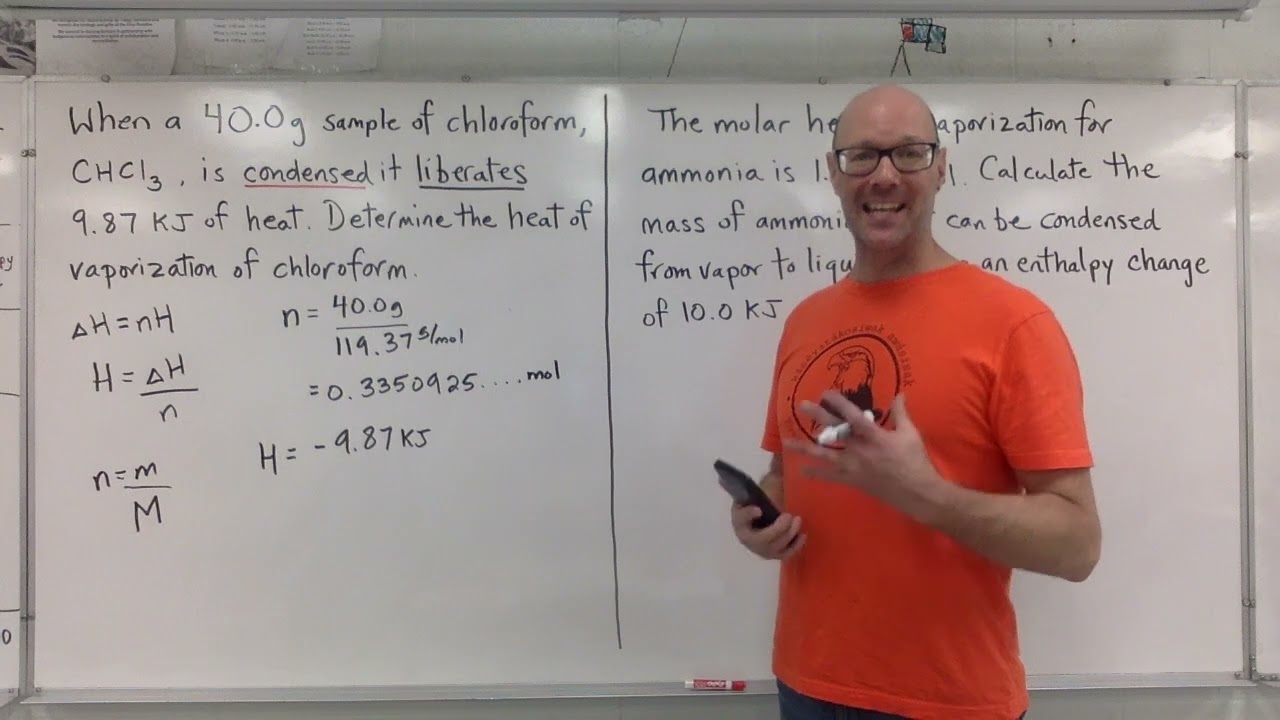 When a 40.0g sample of chloroform,
CHCl3, is condensed it liberates
9.87 KJ of heat. Determine the heat of
vaporization of chloroform.
ΔH = nH
H = ΔH
n
n = m
M
n = 40.0g
119.37 g/mol
= 0.3350925.... mol
H = - 9.87 KJ
The molar
for
ammonia is 1. Calculate the
mass of can be condensed
from vapor to an enthalpy change
of 10.0 KJ